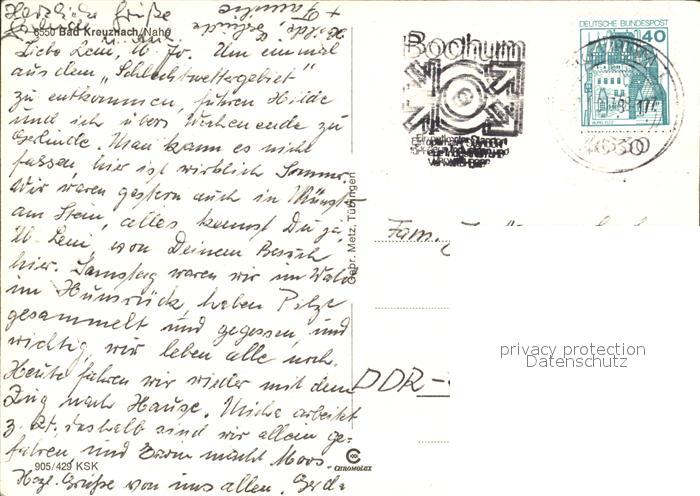 Herzliche Grüße
Hilde
+ Familie
6550 Bad Kreuznach/Nahe
Liebe Leni, lb. Jo. Um einmal
aus dem "Schlechtwettergebiet"
zu entkommen, fuhren Hilde
und ich übers Wochenende zu
Gerlinde. Man kann es nicht
fassen, hier ist wirklich Sommer.
Wir waren gestern auch in Münster
am Stein, alles kennst Du ja
lb. Leni von Deinem Besuch
hier. Samstag waren wir im Wald
im Hunsrück, haben Pilze
gesammelt und gegessen, und
wichtig, wir leben alle noch.
Heute fahren wir wieder mit dem
Zug nach Hause. arbeitet
z. Zt. deshalb sind wir allein ge-
fahren, und Erwin macht Moos.
Hzgl. Grüße von uns allen. Gerda
905/429 KSK
CHROMOLUX
Gebr. Metz, Tübingen
Bochum
DEUTSCHE BUNDESPOST
40
Fam.
DDR-
privacy protection
Datenschutz